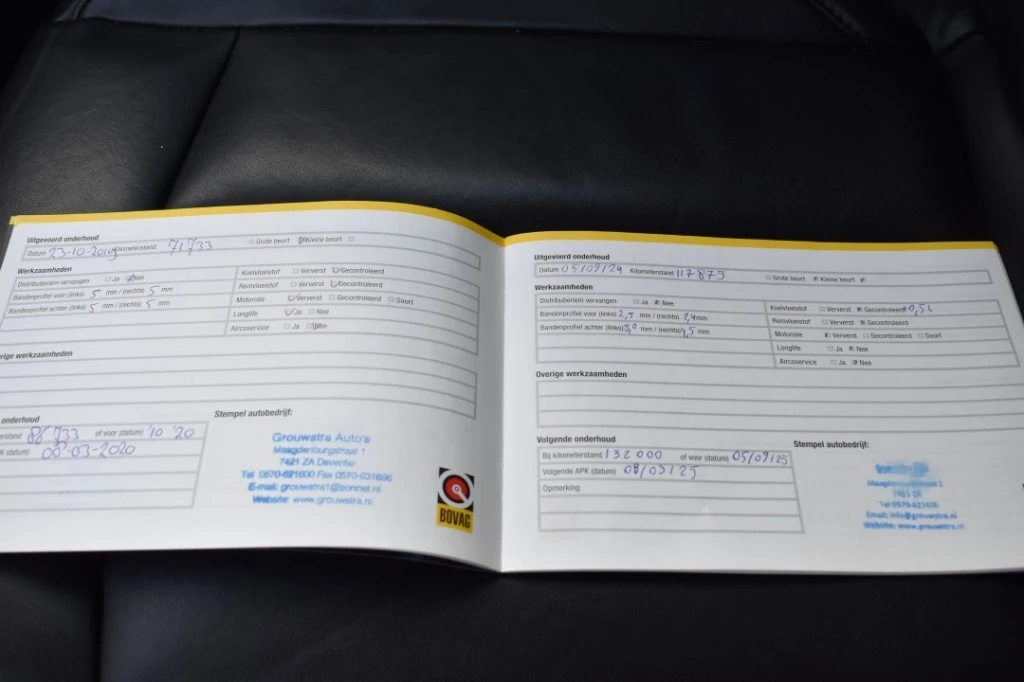 Uitgevoerd onderhoud
Datum 23-10-2019 Kilometerstand 71733 Grote beurt Kleine beurt
Werkzaamheden
Distributieriem vervangen Ja Nee
Bandenprofiel voor (links) 5 mm / (rechts) 5 mm
Bandenprofiel achter (links) 5 mm / (rechts) 5 mm
Koelvloeistof Ververst Gecontroleerd
Remvloeistof Ververst Gecontroleerd
Motorolie Ververst Gecontroleerd Soort
Longlife Ja Nee
Aircoservice Ja Nee
rige werkzaamheden
onderhoud
erstand 86733 of voor (datum) '10 '20
K (datum) 08-03-2020
Stempel autobedrijf:
Grouwstra Auto's
Maagdenburgstraat 1
7421 ZA Deventer
Tel 0570-621600 Fax 0570-631606
E-mail: grouwstra1@zonnet.nl
Website: www.grouwstra.nl
BOVAG
Uitgevoerd onderhoud
Datum 05/09/24 Kilometerstand 117875 Grote beurt Kleine beurt
Werkzaamheden
Distributieriem vervangen Ja Nee
Bandenprofiel voor (links) 2,5 mm / (rechts) 2,4 mm
Bandenprofiel achter (links) 5,0 mm / (rechts) 4,5 mm
Koelvloeistof Ververst Gecontroleerd 0,5L
Remvloeistof Ververst Gecontroleerd
Motorolie Ververst Gecontroleerd Soort
Longlife Ja Nee
Aircoservice Ja Nee
Overige werkzaamheden
Volgende onderhoud
Bij kilometerstand 132000 of voor (datum) 05/09/25
Volgende APK (datum) 09/25
Opmerking
Stempel autobedrijf:
Tel 0570-621600
Email: info@grouwstra.nl
Website: www.grouwstra.nl